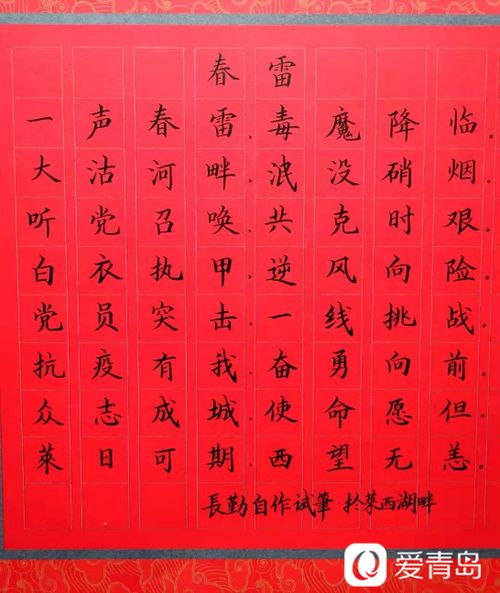 春雷
一声春雷.毒魔降临
大沽河畔.泯没硝烟
听党召唤.共克时艰
白衣执甲.逆风向险
党员突击.一线挑战
抗疫有我.奋勇向前
众志成城.使命愿但
萊日可期.西望无恙.
長勤自作试筆·於萊西湖畔
爱青岛